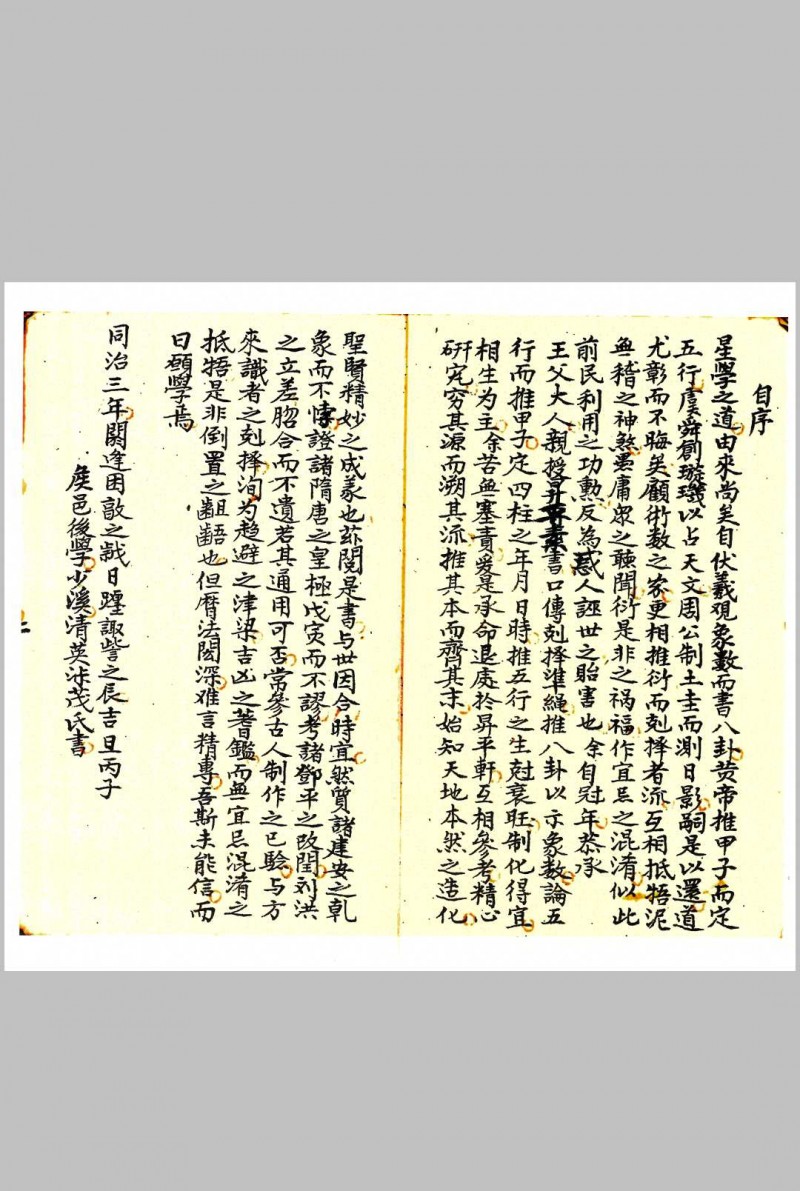 自序
星學之道由來尚矣自伏羲观象數而書八卦黄帝推甲子而定
五行虞舜創璇璣以占天文周公制土圭而測日影嗣是以還道
尤彰而不晦矣顧術数之家更相推衍而剋擇者流互相抵牾泥
無稽之神煞愚庸眾之聴聞衍是非之禍福作宜忌之混淆似此
前民利用之功勲反為惑人誣世之貽害也余自冠年恭承
王父大人親授書口傳剋擇準繩推八卦以示象数論五
行而推甲子定四柱之年月日時推五行之生尅衰旺制化得宜
相生為主余苦無塞責爰是承命退處於昇平軒互相參考精心
研究穷其源而溯其流推其本而齊其末始知天地本然之造化
聖賢精妙之成義也茲閱是書与世因合時宜然質諸建安之乹
象而不悖證諸隋唐之皇極戊寅而不謬考諸鄧平之改閏刘洪
之立差脗合而不遺若其通用可否常參古人制作之已驗与方
來識者之剋擇洵为趋避之津梁吉凶之蓍鑑而無宜忌混淆之
抵牾是非倒置之齟齬也但曆法閎深难言精專吾斯未能信而
曰願學焉
同治三年閼逢困敦之歲日躔諏訾之辰吉旦丙子
侯邑後學少溪清英茂氏書
二